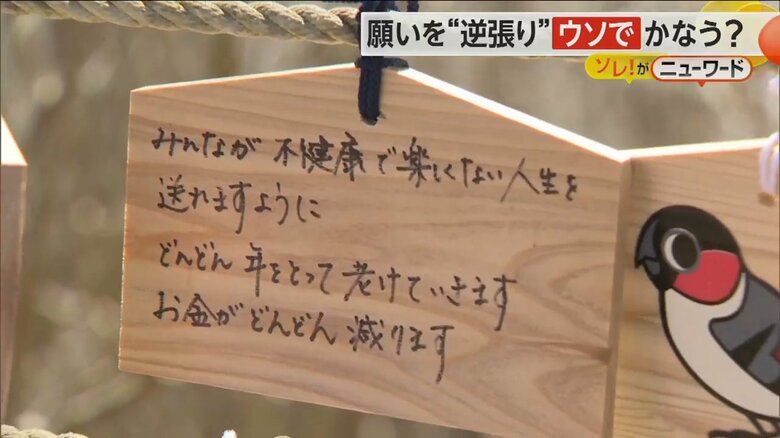 願いを“逆張り”ウソでかなう?
ソレ!がニューワード
みんなが 不健康で楽しくない人生を
送れますように
どんどん 年をとって 老けていきます
お金が どんどん 減ります